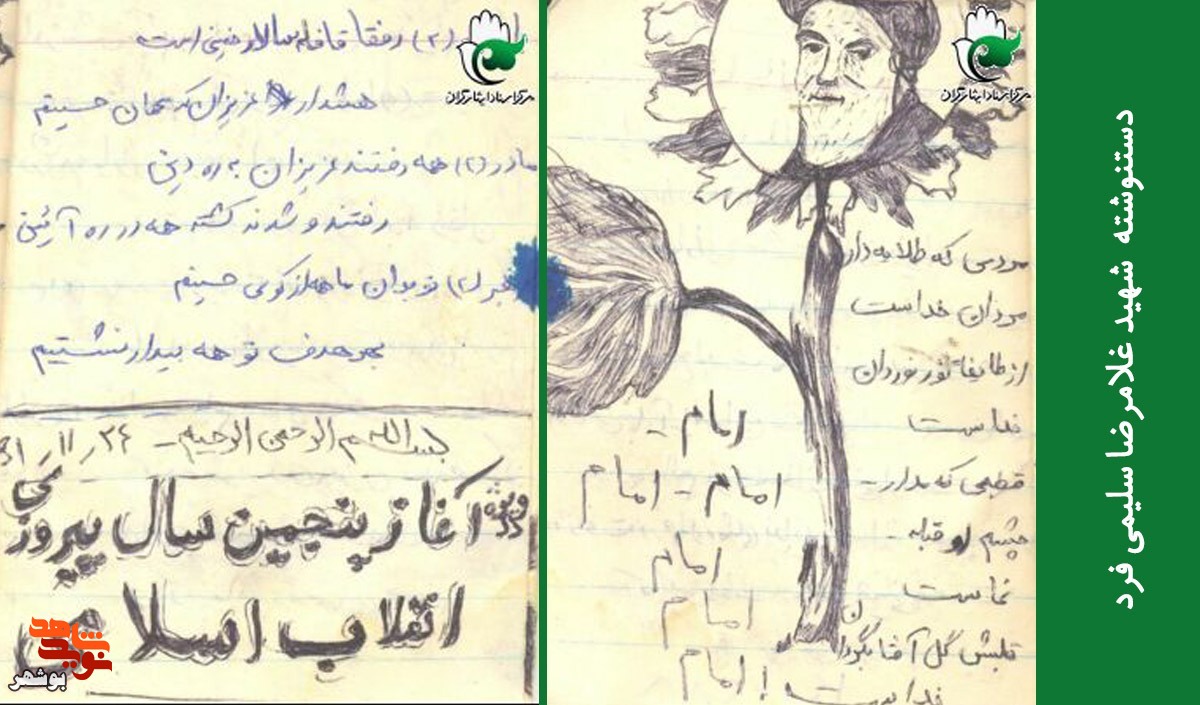 دستنوشته شهید غلامرضا سلیمی فرد
مرکز اسناد ایثارگران
مردمی که طلایه دار
مردان خداست
از طایفهٔ نور نوردان
خداست
قطبی که مدار -
چشم او قبله -
نماست
قلبش گل آفتابگردان
خداست
امام -
امام - امام
امام
امام
امام !
مرکز اسناد ایثارگران
(۲) رفقا قافله سالار خمینی است
هشدار عزیزان که همان حسینم
مادر (۲) همه رفتند عزیزان به ره دین
رفتند و شدند کشته همه در ره آئین
(۲) نوجوان ما همه از کوی حسینم
بهر هدف تو همه بیدار نشستیم
بسم الله الرحمن الرحیم - ۲۴ ر ۱۱ ر
ویژه آغاز پنجمین سال پیروزی
انقلاب اسلامی
نوید شاهد
بوشهر